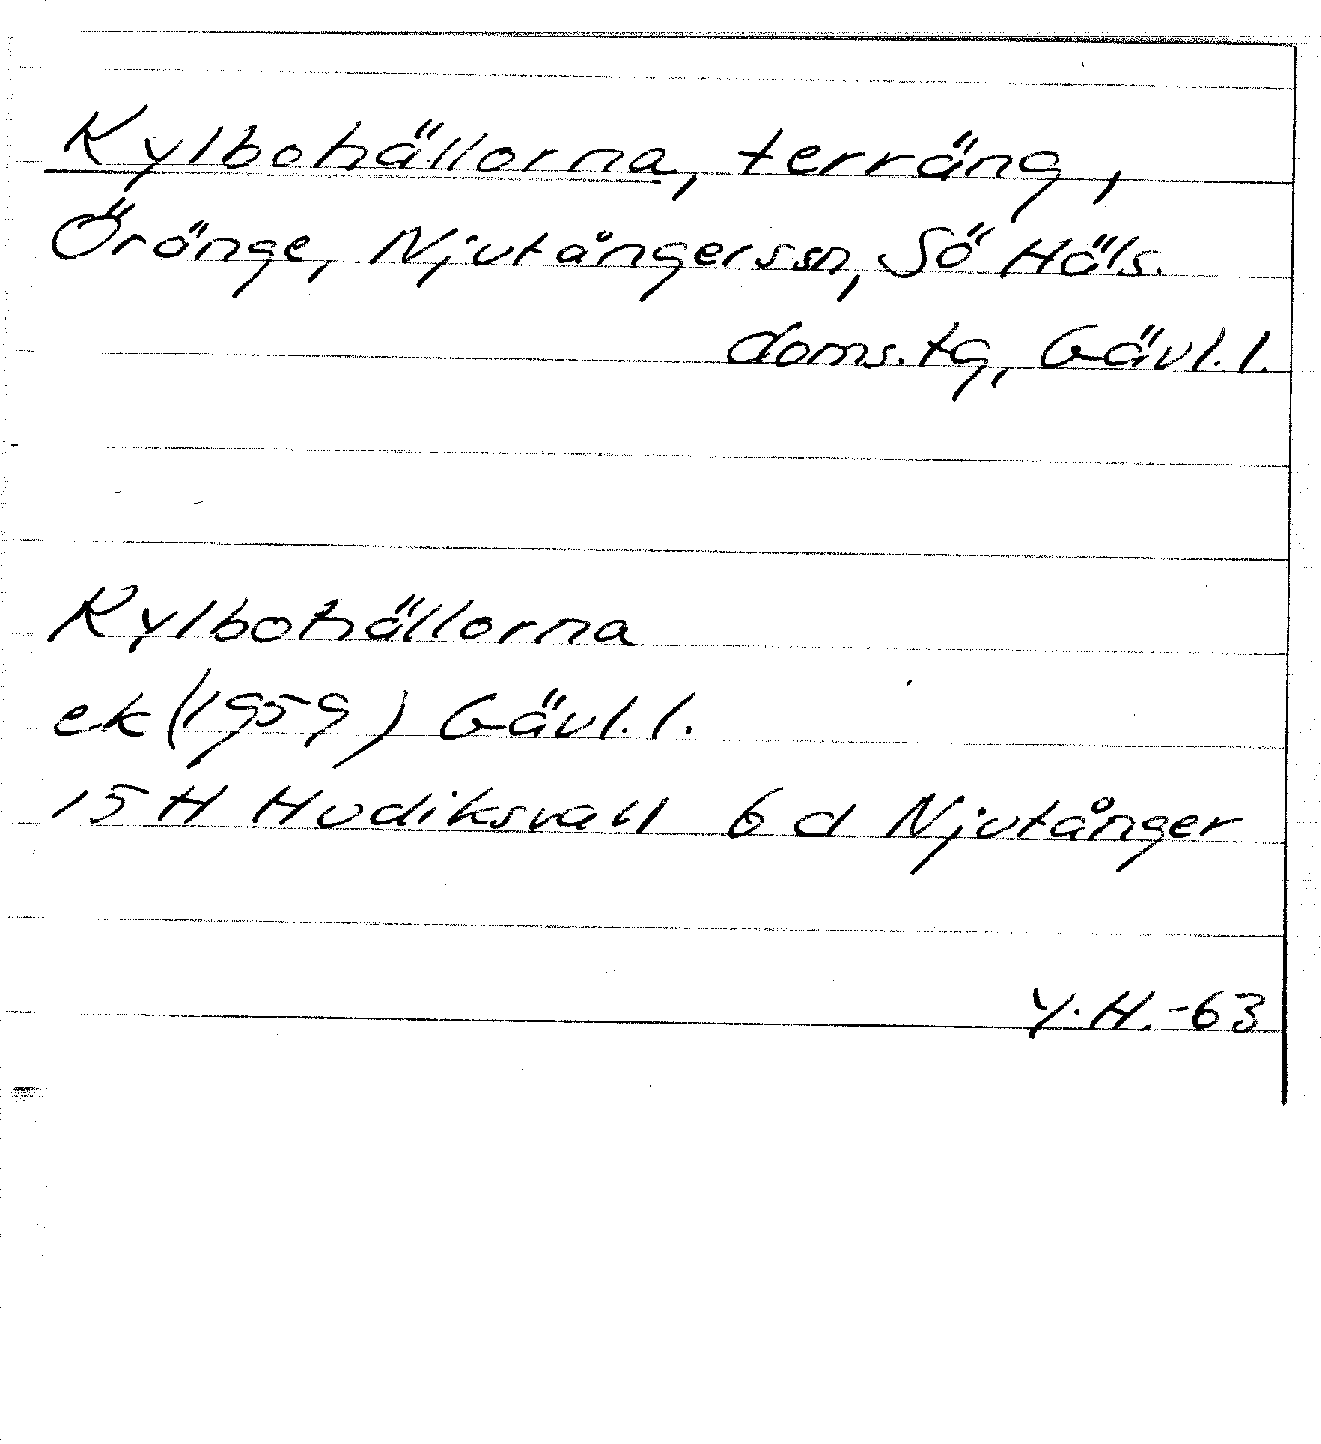 Kylbohällorna, terräng,
Öränge, Njutångerssn, Sö Häls.
doms.tg, Gävl.l.
Kylbohällorna
ek (1959) Gävl.l.
15 H Hudiksvall 6 d Njutånger
Y.H.-63